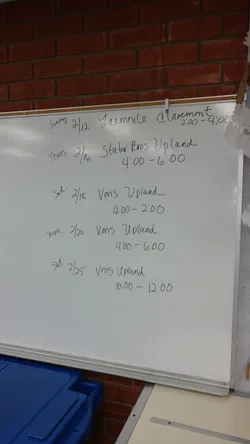 Sun 2/12 Claremont
2:00 - 4:00
Thurs 2/16 Stater Bros Upland
4:00 - 6:00
Sat 2/18 Vons Upland
12:00 - 2:00
Mon 2/20 Vons Upland
4:00 - 6:00
Sat 2/25 Vons Upland
10:00 - 12:00